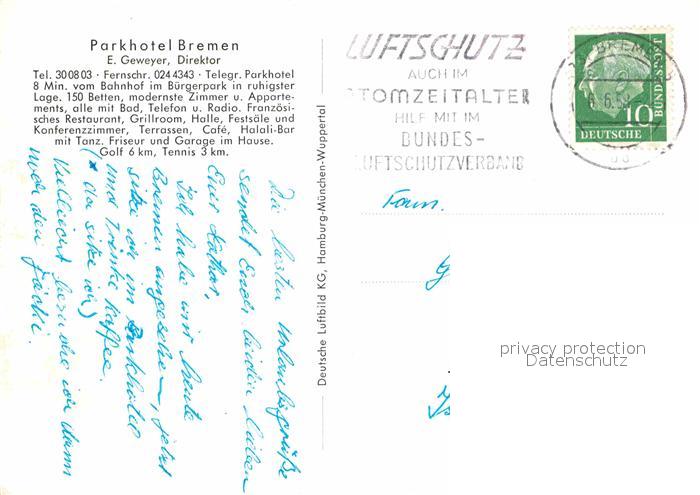 Parkhotel Bremen
E. Geweyer, Direktor
Tel. 300803 · Fernschr. 0244343 · Telegr. Parkhotel
8 Min. vom Bahnhof im Bürgerpark in ruhigster
Lage. 150 Betten, modernste Zimmer u. Apparte-
ments, alle mit Bad, Telefon u. Radio. Französi-
sches Restaurant, Grillroom, Halle, Festsäle und
Konferenzzimmer, Terrassen, Café, Halali-Bar
mit Tanz. Friseur und Garage im Hause.
Golf 6 km, Tennis 3 km.
Die besten Urlaubsgrüße
sendet Euch beiden lieben
Euer Lothar.
Ich habe mir heute
Bremen angesehen, jetzt
sitze ich im Parkhotel
und trinke Kaffee.
(* da sitze ich)
Vielleicht besuche ich dann
noch den Jacki.
Deutsche Luftbild KG, Hamburg-München-Wuppertal
LUFTSCHUTZ
AUCH IM
ATOMZEITALTER
HILF MIT IM
BUNDES-
LUFTSCHUTZVERBAND
BREMEN
6.59
10
DEUTSCHE
BUNDESPOST
Fam.
G
Is
privacy protection
Datenschutz